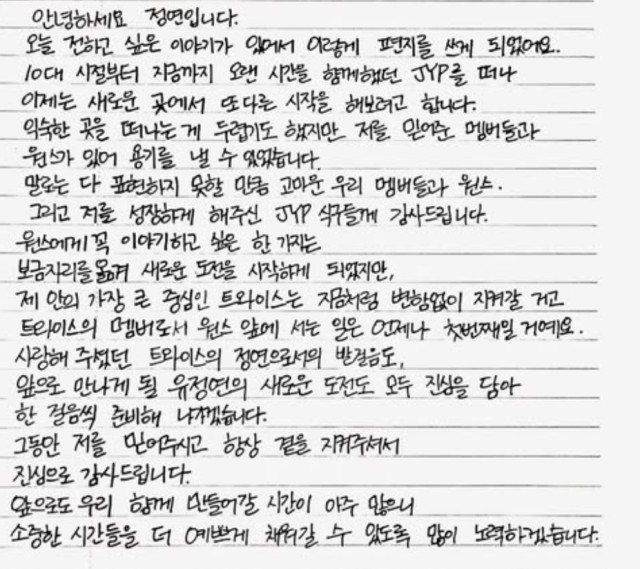 안녕하세요 정연입니다.
오늘 전하고 싶은 이야기가 있어서 이렇게 편지를 쓰게 되었어요.
10대 시절부터 지금까지 오랜 시간을 함께했던 JYP를 떠나
이제는 새로운 곳에서 또다른 시작을 해보려고 합니다.
익숙한 곳을 떠나는게 두렵기도 했지만 저를 믿어준 멤버들과
원스가 있어 용기를 낼 수 있었습니다.
말로는 다 표현하지 못할 만큼 고마운 우리 멤버들과 원스.
그리고 저를 성장하게 해주신 JYP 식구들께 감사드립니다.
원스에게 꼭 이야기하고 싶은 한 가지는
보금자리를 옮겨 새로운 도전을 시작하게 되었지만,
제 안의 가장 큰 중심인 트와이스는 지금처럼 변함없이 지켜갈 거고
트와이스의 멤버로서 원스 앞에 서는 일은 언제나 첫번째일 거예요.
사랑해 주셨던 트와이스의 정연으로서의 발걸음도,
앞으로 만나게 될 유정연의 새로운 도전도 모두 진심을 담아
한 걸음씩 준비해 나가겠습니다.
그동안 저를 믿어주시고 항상 곁을 지켜주셔서
진심으로 감사드립니다.
앞으로도 우리 함께 만들어갈 시간이 아주 많으니
소중한 시간들을 더 예쁘게 채워갈 수 있도록 많이 노력하겠습니다.